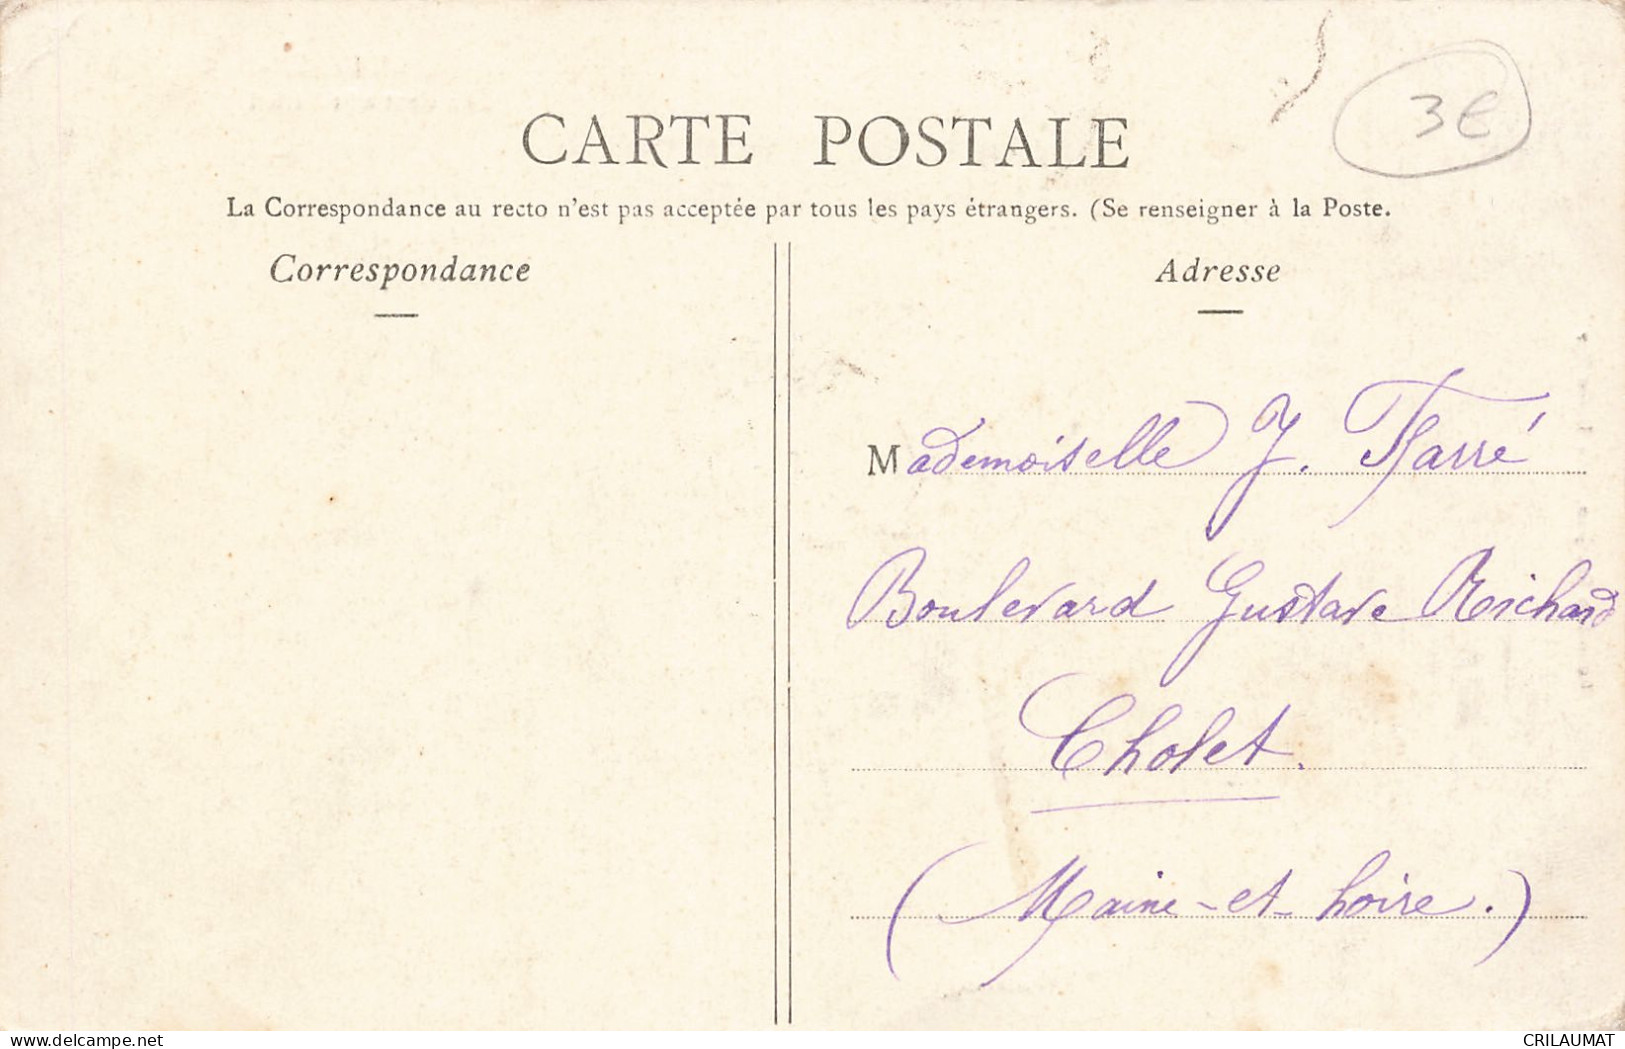 3€
CARTE POSTALE
La Correspondance au recto n'est pas acceptée par tous les pays étrangers. (Se renseigner à la Poste.
Correspondance
Adresse
Mademoiselle J. Farré
Boulevard Gustave Richard
Cholet.
(Maine-et-Loire.)
www.delcampe.net
CRILAUMAT